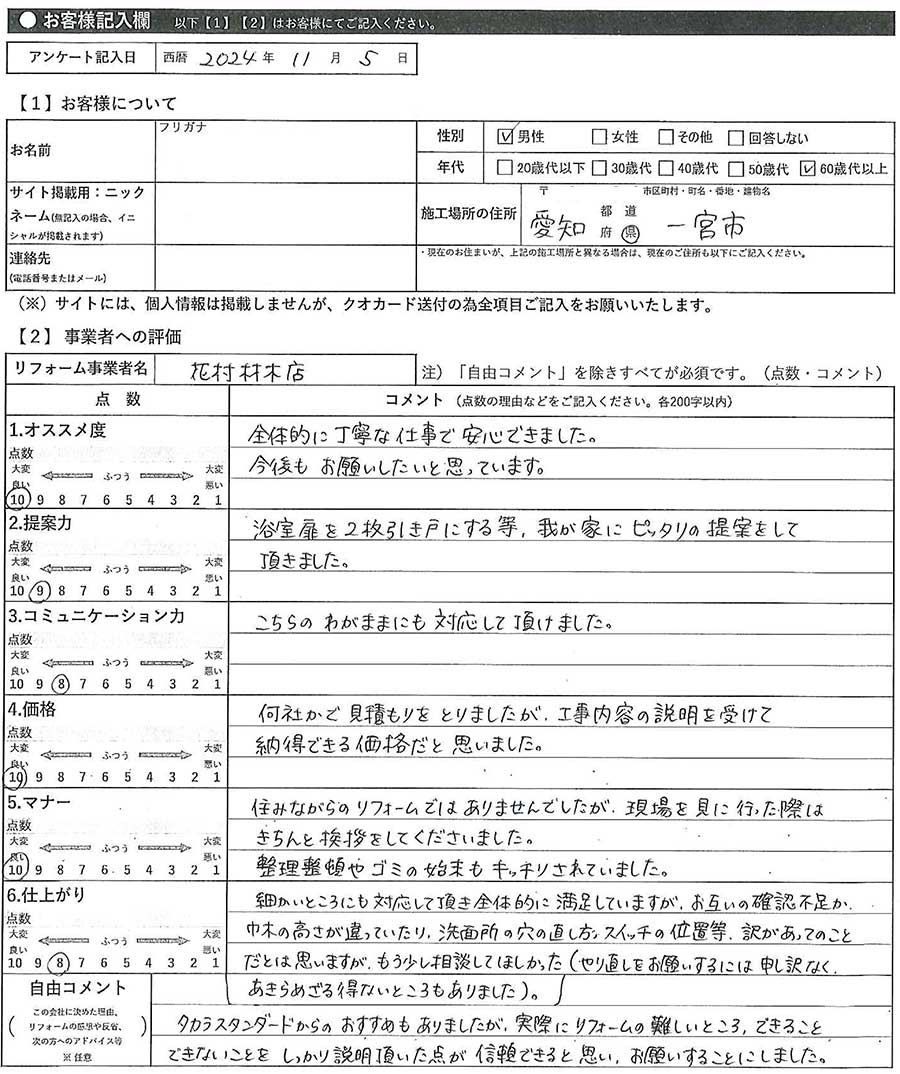 ● お客様記入欄 以下【1】【2】はお客様にてご記入ください。
アンケート記入日 西暦 2024 年 11 月 5 日
【1】お客様について
お名前 フリガナ
性別 ☑男性 □女性 □その他 □回答しない
年代 □20歳代以下 □30歳代 □40歳代 □50歳代 ☑60歳代以上
サイト掲載用：ニック
ネーム(無記入の場合、イニ
シャルが掲載されます)
施工場所の住所 〒 市区町村・町名・番地・建物名
愛知 都 道 府 県 一宮市
連絡先
(電話番号またはメール)
・現在のお住まいが、上記の施工場所と異なる場合は、現在のご住所も以下にご記入ください。
（※）サイトには、個人情報は掲載しませんが、クオカード送付の為全項目ご記入をお願いいたします。
【2】事業者への評価
リフォーム事業者名 花村材木店 注）「自由コメント」を除きすべてが必須です。（点数・コメント）
点 数 コメント（点数の理由などをご記入ください。各200字以内）
1.オススメ度
点数
大変 ふつう 大変
良い 悪い
10 9 8 7 6 5 4 3 2 1
全体的に丁寧な仕事で安心できました。
今後もお願いしたいと思っています。
2.提案力
点数
大変 ふつう 大変
良い 悪い
10 9 8 7 6 5 4 3 2 1
浴室扉を2枚引き戸にする等，我が家にピッタリの提案をして
頂きました。
3.コミュニケーション力
点数
大変 ふつう 大変
良い 悪い
10 9 8 7 6 5 4 3 2 1
こちらのわがままにも対応して頂けました。
4.価格
点数
大変 ふつう 大変
良い 悪い
10 9 8 7 6 5 4 3 2 1
何社かで見積もりをとりましたが、工事内容の説明を受けて
納得できる価格だと思いました。
5.マナー
点数
大変 ふつう 大変
良い 悪い
10 9 8 7 6 5 4 3 2 1
住みながらのリフォームではありませんでしたが、現場を見に行った際は
きちんと挨拶をしてくださいました。
整理整頓やゴミの始末もキッチリされていました。
6.仕上がり
点数
大変 ふつう 大変
良い 悪い
10 9 8 7 6 5 4 3 2 1
細かいところにも対応して頂き全体的に満足していますが、お互いの確認不足か、
巾木の高さが違っていたり、洗面所の穴の直し方、スイッチの位置等、訳があってのこと
だとは思いますが、もう少し相談してほしかった（やり直しをお願いするには申し訳なく、
あきらめざる得ないところもありました）。
自由コメント
（この会社に決めた理由、
リフォームの感想や反省、
次の方へのアドバイス等）
※任意
タカラスタンダードからのおすすめもありましたが、実際にリフォームの難しいところ，できること
できないことをしっかり説明頂いた点が信頼できると思い、お願いすることにしました。